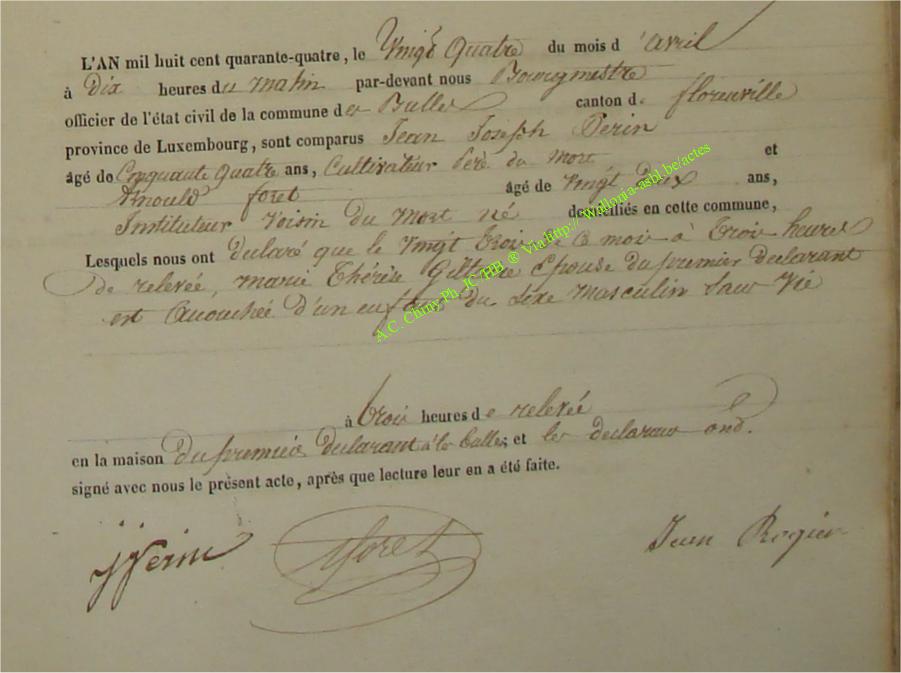 L'AN mil huit cent quarante-quatre, le Vingt Quatre du mois d'avril
à Dix heures du matin par-devant nous Bourgmestre
officier de l'état civil de la commune des Bulles canton de florenville
province de Luxembourg, sont comparus Jean Joseph Perin
âgé de Cinquante Quatre ans, Cultivateur Père du mort et
Arnould foret âgé de Vingt Deux ans,
Instituteur Voisin du mort né domiciliés en cette commune,
Lesquels nous ont déclaré que le Vingt trois de ce mois à trois heures
de relevée, marie thérèse Epouse du premier declarant
est accouchée d'un enfant du sexe masculin sans Vie
à trois heures de relevée
en la maison du premier declarant et les declarans ond.
signé avec nous le présent acte, après que lecture leur en a été faite.
JJ Perin foret Jean Rogier
A.C. Chiny Ph. JC/HB ® Via http:// Wallonia-asbl.be/actes